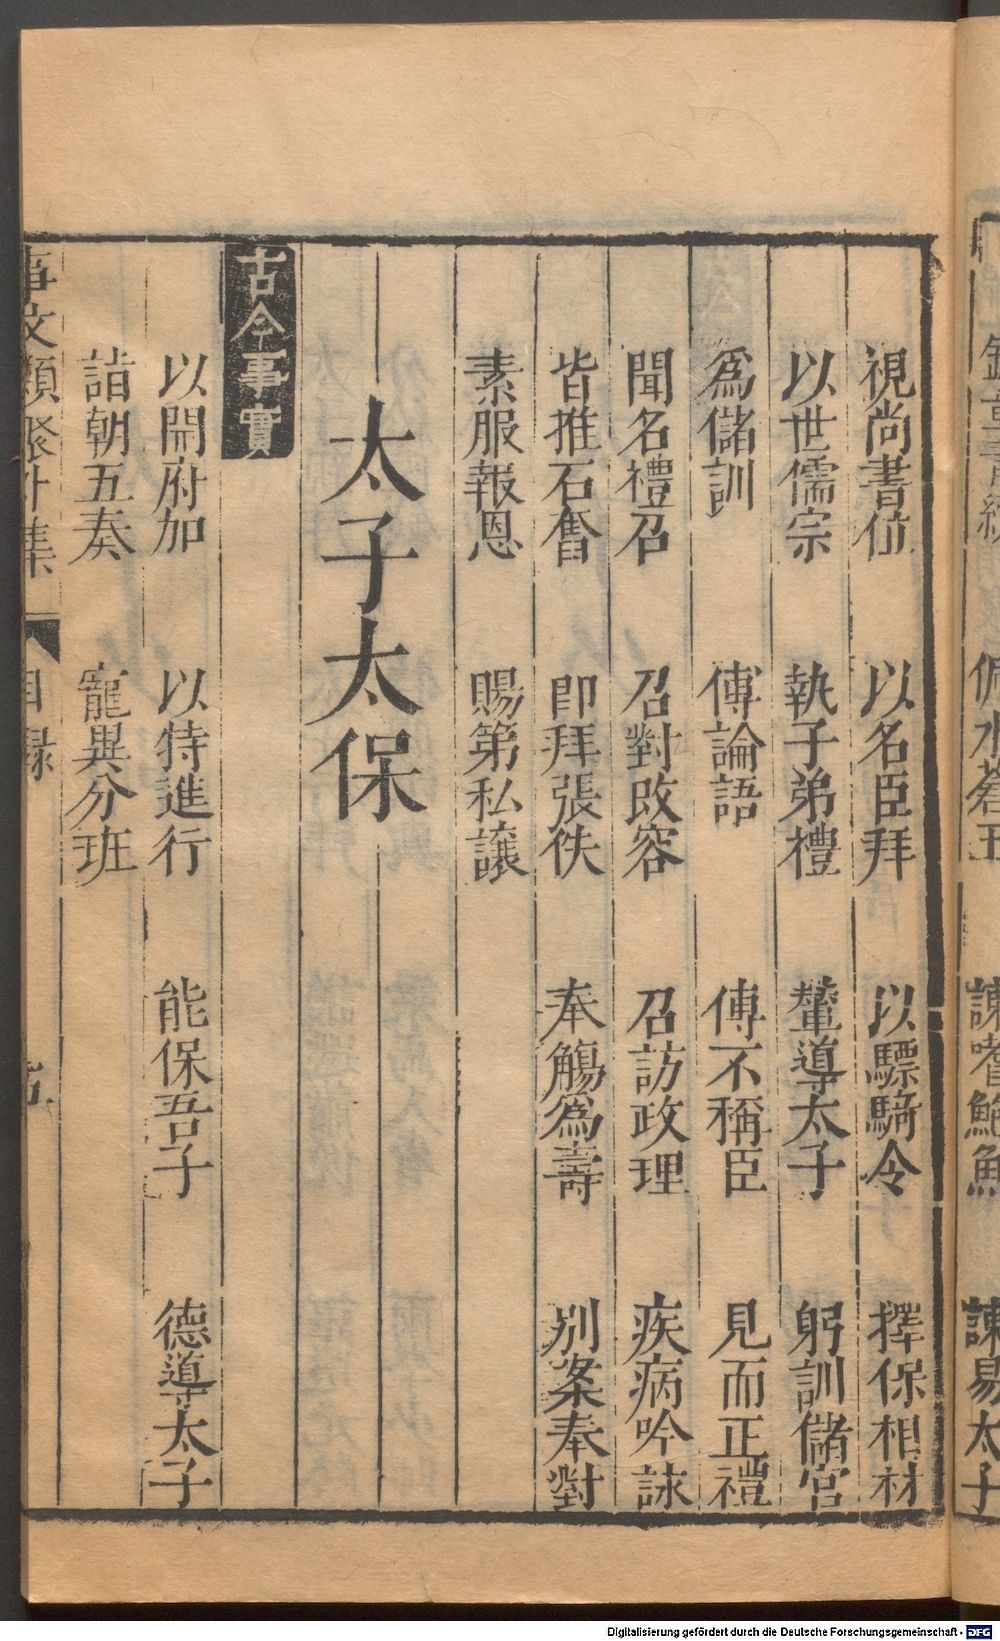 視尚書位　以名臣拜　以驃騎令　擇保相材
以世儒宗　執子弟禮　輦導太子　躬訓儲宮
爲儲訓　傅論語　傅不稱臣　見而正禮
聞名禮召　召對改容　召訪政理　疾病吟詠
皆推石奮　即拜張佚　奉觴爲壽　別案奉對
素服報恩　賜第私讓
太子太保
古今事實
以開府加　以特進行　能保吾子　德導太子
詣朝五奏　寵異分班
事文類聚外集　目錄
佩水蒼玉　諫嗜鮑魚　諫易太子
Digitalisierung gefördert durch die Deutsche Forschungsgemeinschaft - DFG